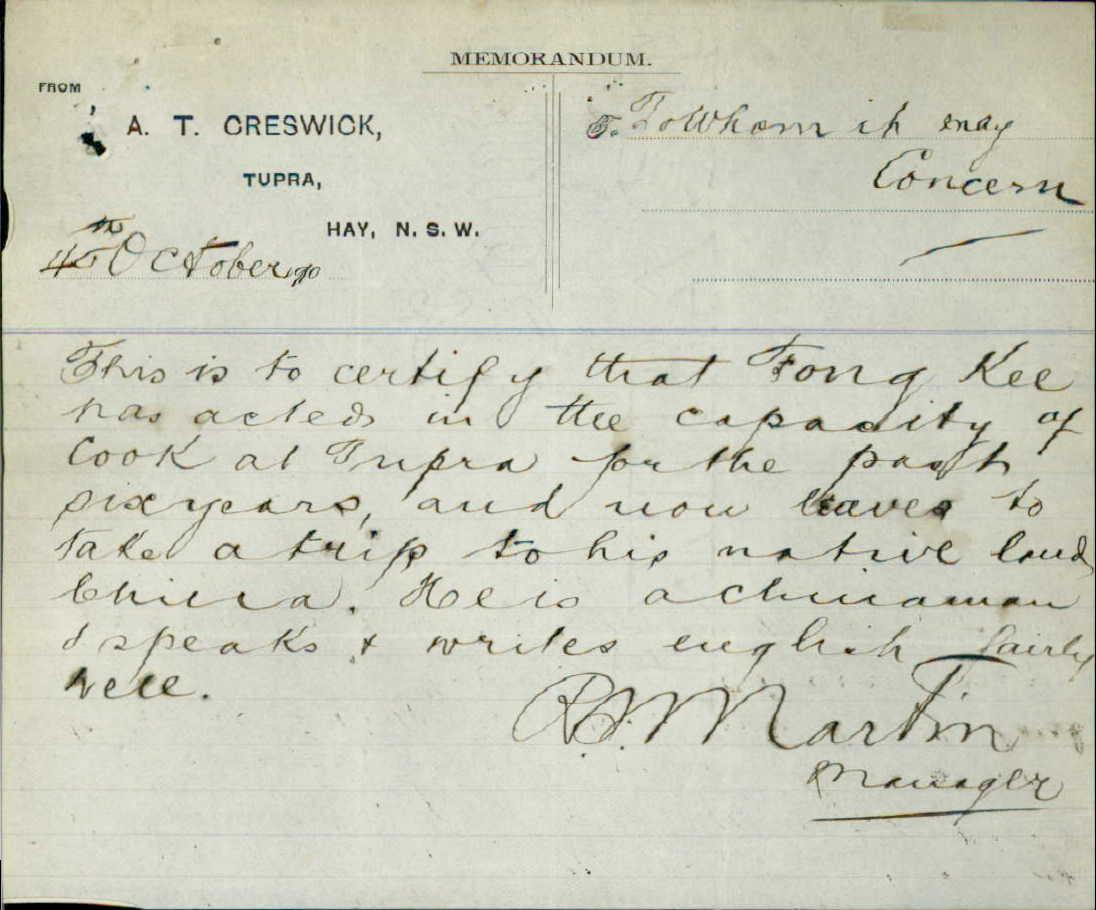 MEMORANDUM.
FROM
A. T. CRESWICK,
TUPRA,
HAY, N. S. W.
4th October
To Whom it may
Concern
This is to certify that Fong Kee
has acted in the capacity of
Cook at Tupra for the past
six years, and now leaves to
take a trip to his native land
China. He is a chinaman
& speaks & writes english fairly
well.
Martin
Manager